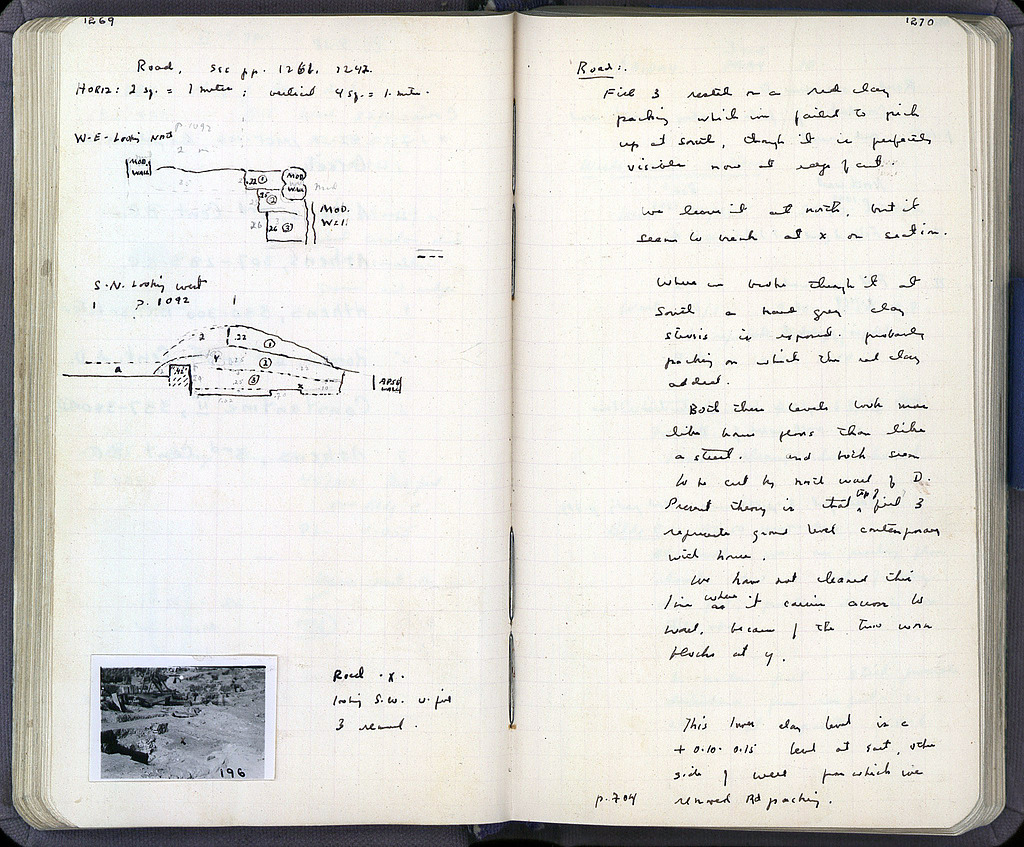 1269
Road, see pp. 1266, 1242.
HORIZ: 2 sq. = 1 meter ; vertical 4 sq. = 1 meter.
W-E-Looking North
p. 1092
2 m
MOD. WALL
.22 ①
MOD WALL
②
26 ③
MOD. WALL
S-N. Looking west
1 p. 1092 1
2
.22 ①
4 ②
a
③
x
APSE WALL
196
Road · x.
looking S.W. w. fill
3 removed.
1270
Road:.
Fill 3 rested on a red clay
packing which we failed to pick
up at south, though it is perfectly
visible now at edge of cut.
We leave it at north, but it
seems to break at x on section.
Where we broke through it at
South a hard grey clay
stereo is exposed. probably
packing on which the red clay
added.
Both these levels look more
like house floors than like
a street. and both seem
to be cut by north wall of D.
Present theory is that top of fill 3
represents ground level contemporary
with house.
We have not cleaned this
line where it carries across to
west, because of the two worn
blocks at y.
This lower clay level is c
+ 0.10-0.15 level at east, other
side of well from which we
p. 704 removed Rd packing.